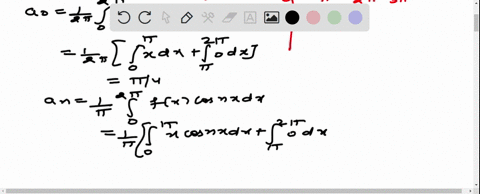 a₀ = 1/2π ∫₀
= 1/2π [∫₀^π x dx + ∫_π^2π 0 dx]
= π/4
aₙ = 1/π ∫₀^2π f(x) cos nx dx
= 1/π [∫₀^π x cos nx dx + ∫_π^2π 0 dx